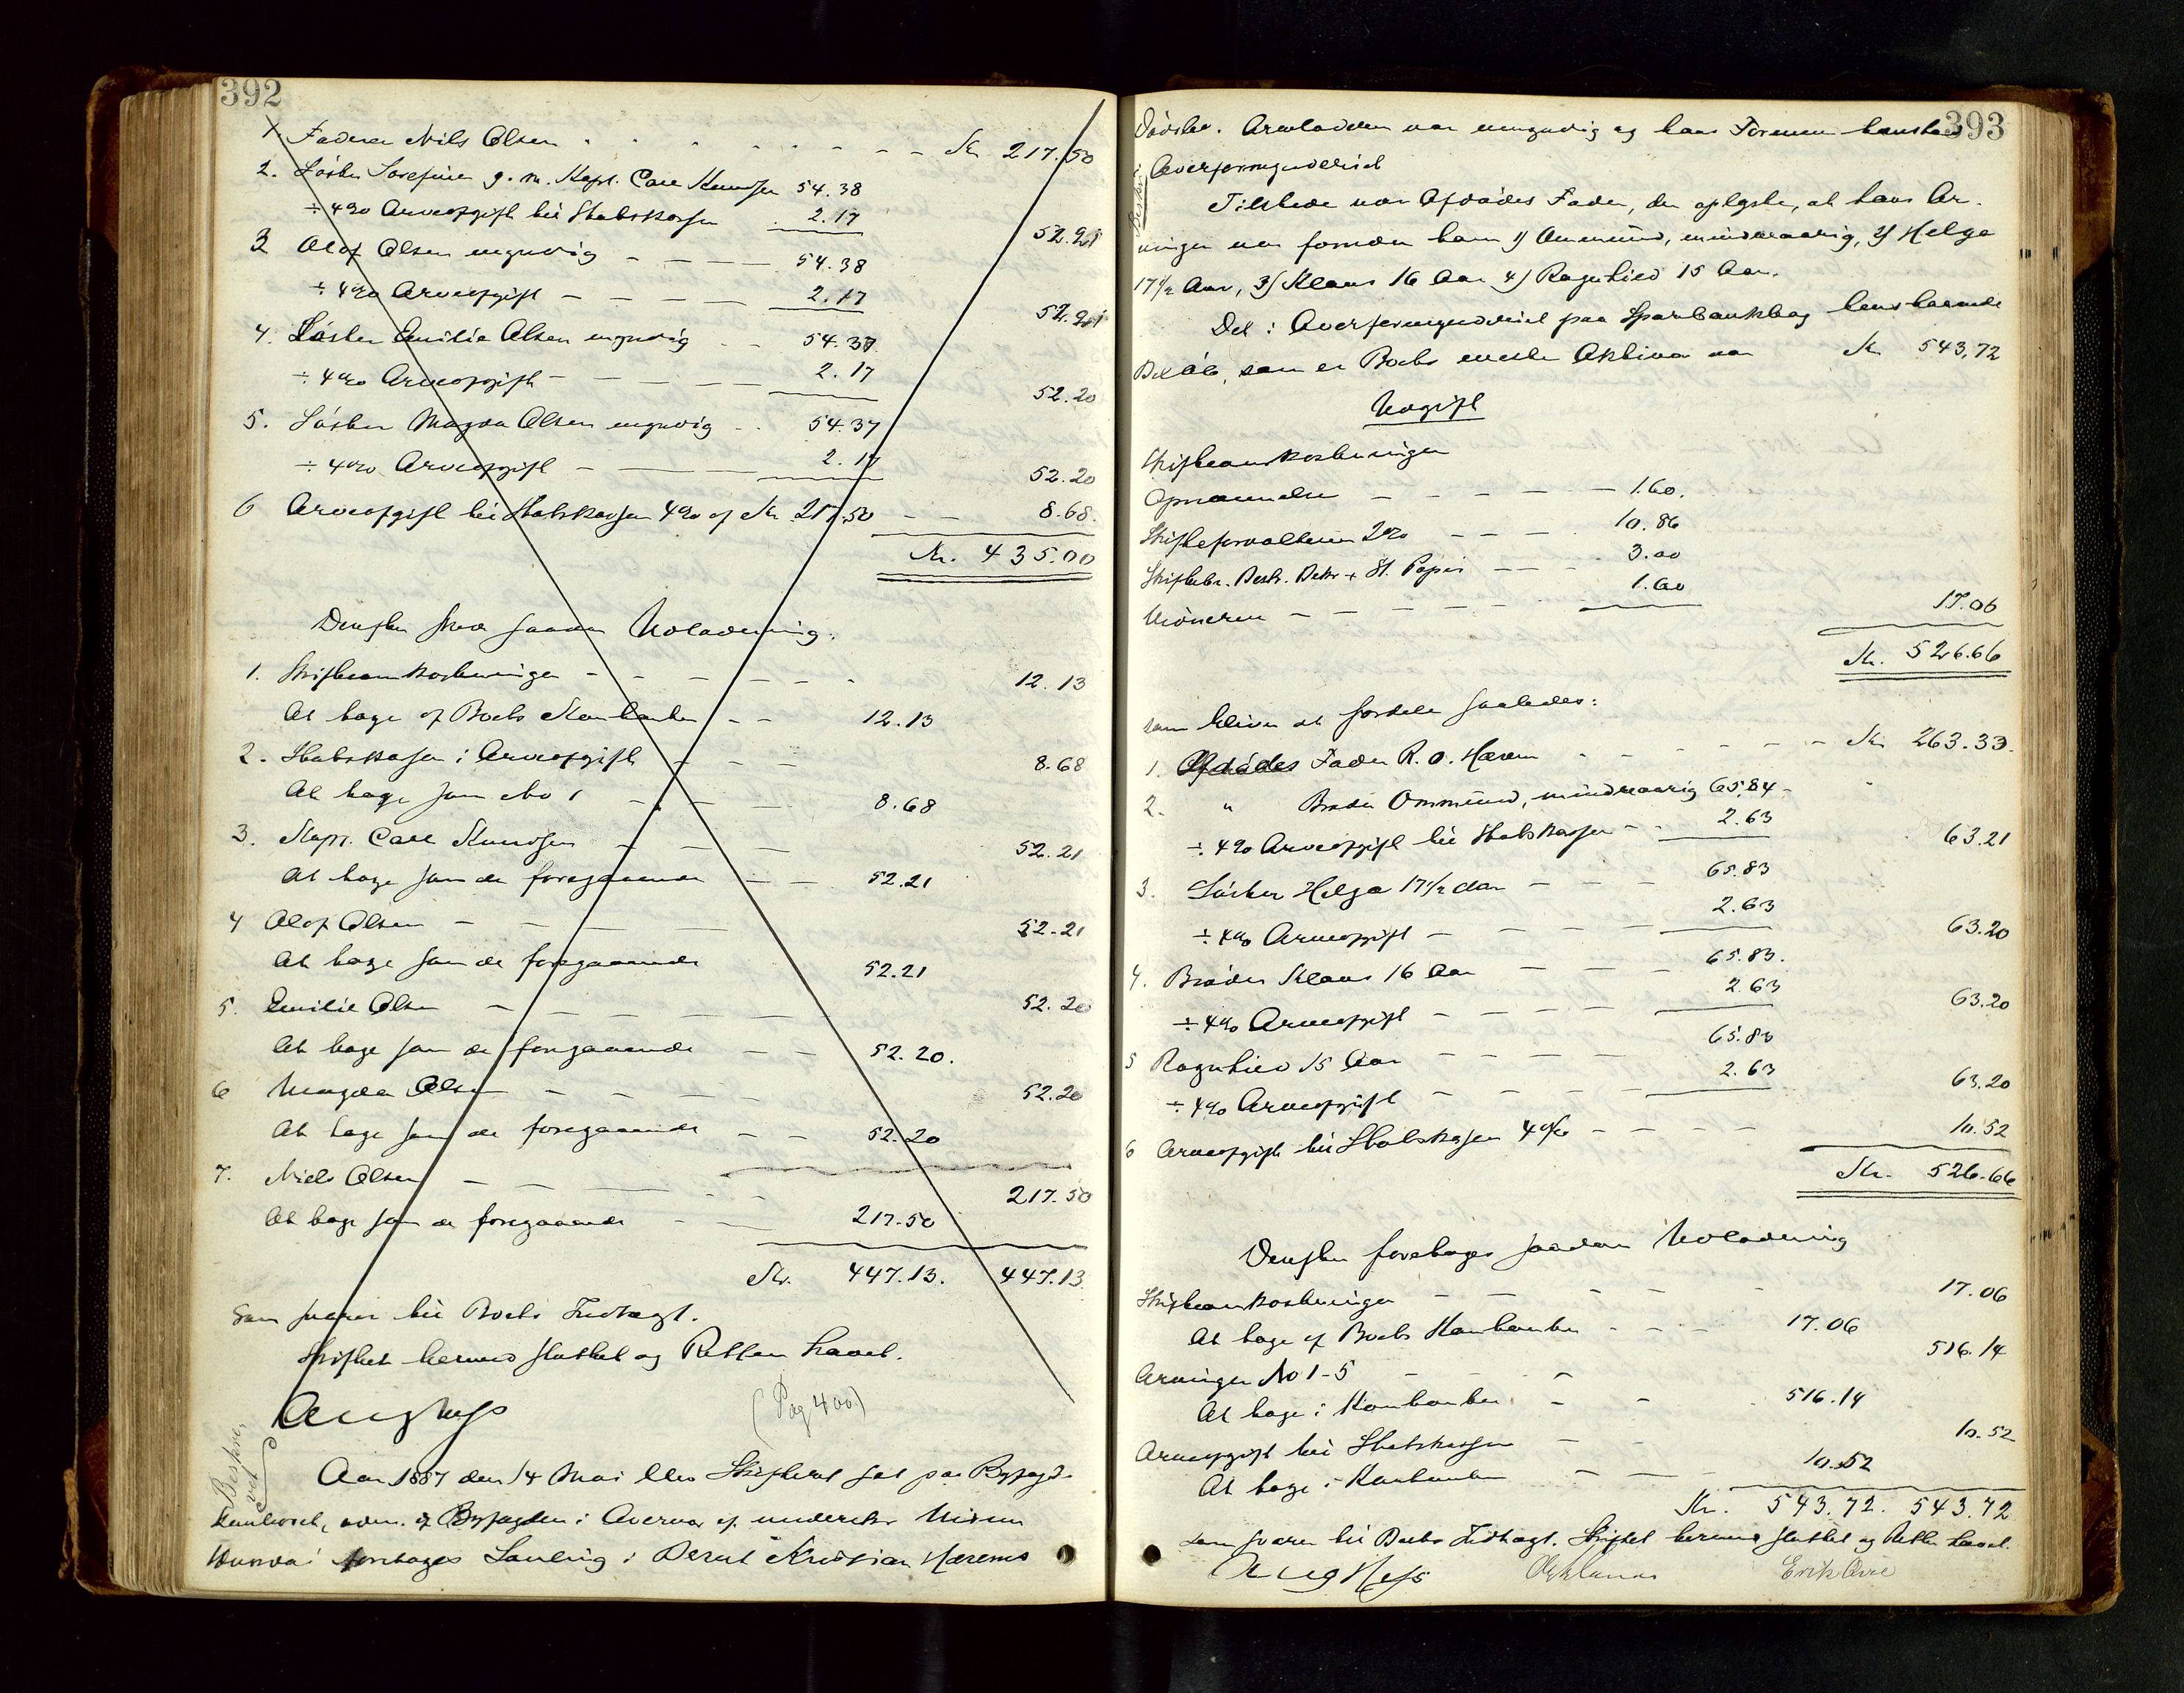 392
1. Faderen Nils Olsen - - - - - Kr. 217.50
2. Søster Sosefine g. m. Kapt. Carl Knudsen 54.38
÷ 4% Arveafgift til Statskassen 2.17 52.21
3 Olaf Olsen umyndig - - - 54.38
÷ 4% Arveafgift - - - 2.17 52.21
4. Søster Emilie Olsen umyndig - - 54.37
÷ 4% Arveafgift - - - 2.17 52.20
5. Søster Magda Olsen umyndig - - 54.37
÷ 4% Arveafgift - - 2.17 52.20
6 Arveafgift til Statskassen 4% af Kr. 217.50 - - 8.68.
Kr. 435.00
Derefter skede saadan Udlodning:
1. Skifteomkostninger - - - - - 12.13
At tage af Boets Kontanter - - 12.13
2. Statskassen i Arveafgift - - - 8.68
At tage som No 1 - - - 8.68
3. Kapt. Carl Knudsen - - - 52.21
At tage som de foregaaende - - 52.21
4 Olaf Olsen - - - - 52.21
At tage som de foregaaende 52.21
5. Emilie Olsen - - - - - 52.20
At tage som de foregaaende - - 52.20.
6 Magda Olsen - - - - 52.20
At tage som de foregaaende - - 52.20
7. Niels Olsen - - - - 217.50
At tage som de foregaaende - - 217.50
Kr. 447.13. 447.13
som svarer til Boets Indtægt.
Skiftet hermed sluttet og Retten hævet.
Aug Hess
(Pag 400)
Beskrevet
Aar 1887 den 14 Mai blev Skifteret sat paa Byfogd-
kontoret, adm. af Byfogden i Overvær af undertegn. Vidner
Hvorda foretoges Samling i Dødsbo Kristian Hærems
393
Dødsbo. Arveladeren var umyndig og hans Formue henstod
i Overformynderiet
Beskr.
Tilstede var Afdødes Fader, der oplyste, at hans Ar-
vinger var foruden ham 1) Ommund, mindreaarig, 2) Helga
17½ Aar, 3) Klaus 16 Aar 4) Ragnhild 15 Aar.
Det i Overformynderiet paa Sparebankbog henstaaende
Beløb, som er Boets eneste Aktiva var Kr 543,72
Udgift
Skifteomkostninger
Opnævnelse - - - - 1.60.
Skifteforvalteren 2% - - - 10.86
Skiftebr. Beskr. Dekr + St. Papir - - - 3.00
Vidnerne - - - - - 1.60 17.06
Kr. 526.66
som bliver at fordele saaledes:
1. Afdødes Fader R. O. Hærem - - - - Kr 263.33.
2. " Broder Ommund, mindreaarig 65.84 -
÷ 4% Arveafgift til Statskassen - - 2.63 63.21
3. Søster Helga 17½ Aar - - - 65.83
÷ 4% Arveafgift - - - - 2.63 63.20
4. Broder Klaus 16 Aar - - - 65.83.
÷ 4% Arveafgift - - - - 2.63 63.20
5 Ragnhild 15 Aar - - - - 65.83
÷ 4% Arveafgift - - - - 2.63 63.20
6 Arveafgift til Statskassen 4% - - - - 10.52
Kr. 526.66
Derefter foretages saadan Udlodning
Skifteomkostninger - - - - 17.06
At tage af Boets Kontanter - - - - 17.06
Arvinger No 1-5 - - - 516.14
At tage i Kontanter - - 516.14
Arveafgift til Statskassen - - 10.52
At tage i Kontanter - - - 10.52
Kr. 543.72. 543.72
som svarer til Boets Indtægt. Skiftet hermed sluttet og Retten hævet.
Aug Hess